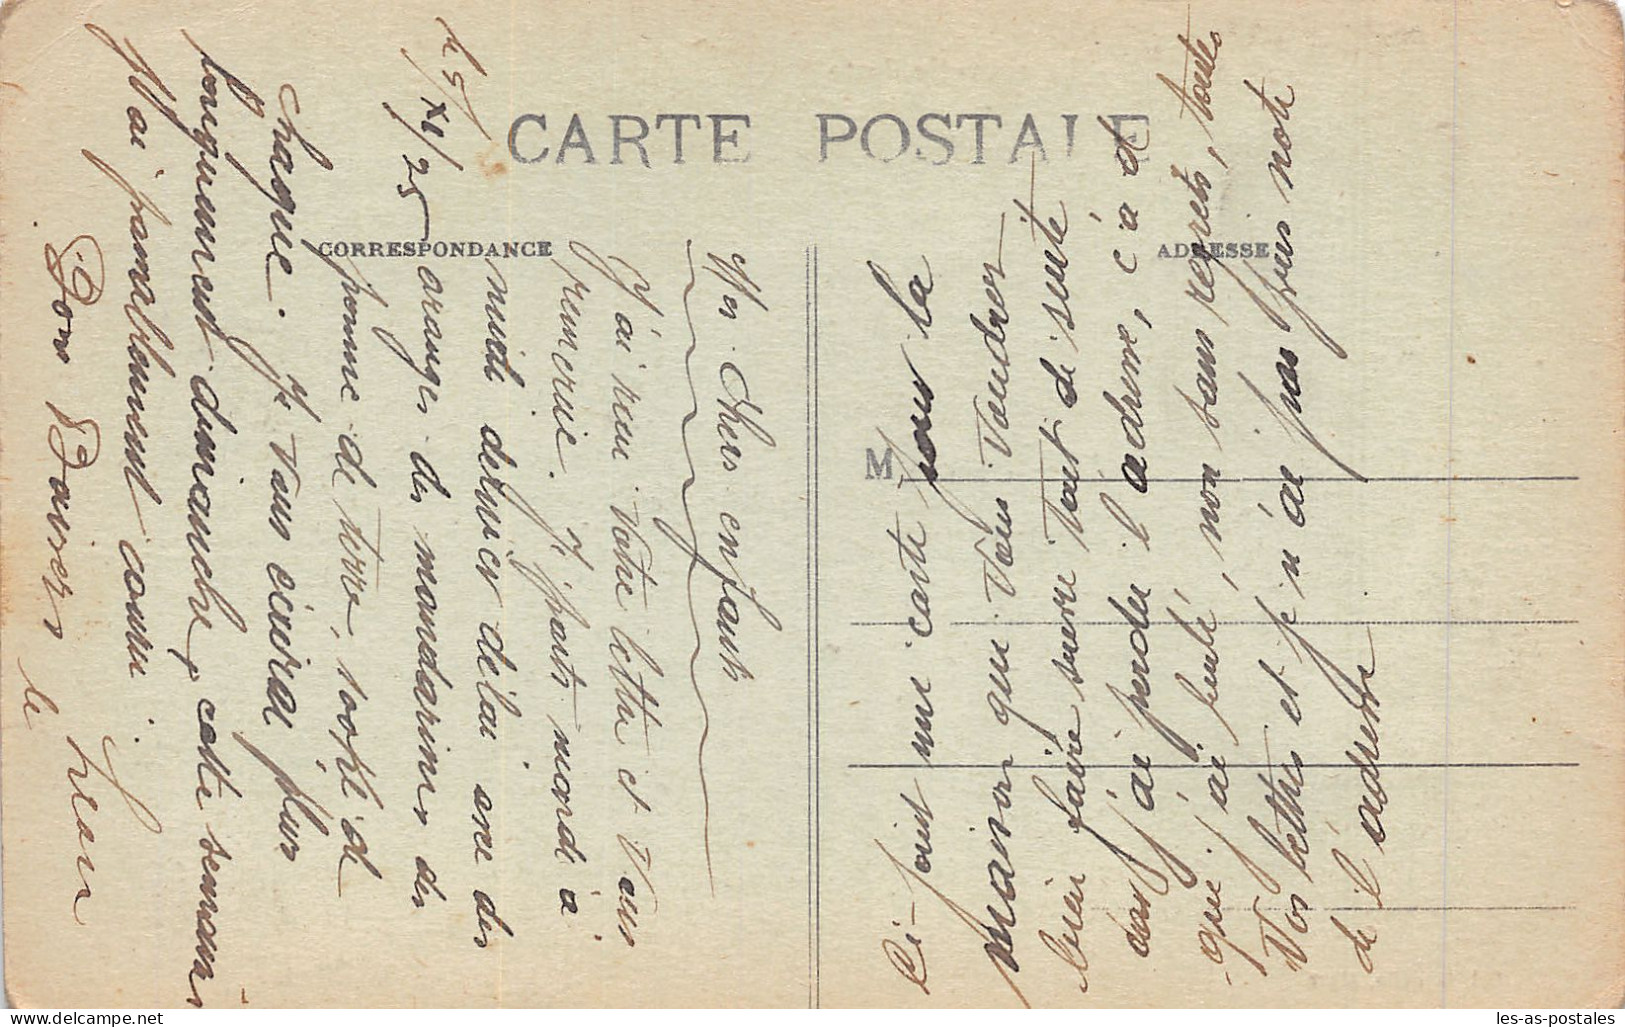 CARTE POSTALE
CORRESPONDANCE
ADRESSE
M
le 5/XI/25
Mes Chers enfants
J'ai reçu votre lettre et vous
remercie. Je parts mardi à
midi dernier délai avec des
oranges des mandarines des
pomme de terre, 100 Kg de
chaque. Je vous écrirai plus
longuement dimanche, cette semaine
j'ai pas mal courru.
Bons Baisers
Ci-joint une carte pour la
maison que vous voudrez
bien faire suivre tout de suite
car j'ai perdu l'adresse, c'à d
que j'ai brulé, non sans regrets, toutes
vos lettres et je n'ai pas pris note
de l'adresse
les-as-postales
www.delcampe.net